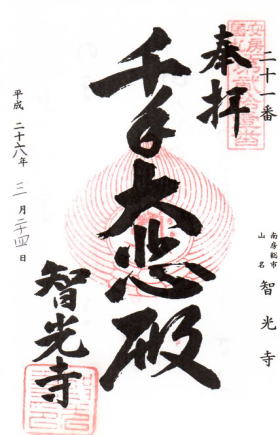 二十一番
奉拝
南房総市
山名
智光寺
千手大悲殿
智光寺
平成二十六年三月二十四日